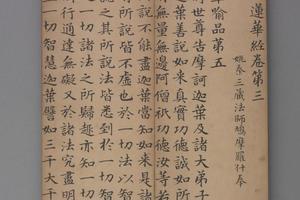 蓮華經卷第三
姚秦三藏法師鳩摩羅什奉
喻品第五
時世尊告摩訶迦葉及諸大弟子
迦葉善說如來真實功德誠如所
無量無邊阿僧祇功德汝等若
說不能盡迦葉當知如來是諸
所說皆不虛也於一切法以智
說之其所說法皆悉到於一切智
一切諸法之所歸趣亦知一切
所行通達無礙又於諸法究盡明
一切智慧迦葉譬如三千大千